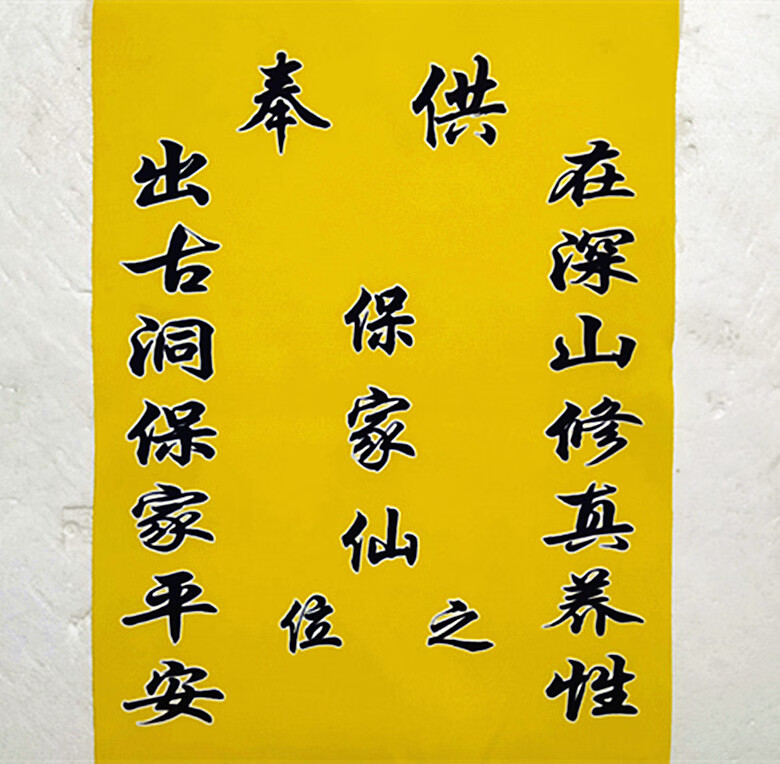 供奉
在深山修真养性
保家仙
之位
出古洞保家平安